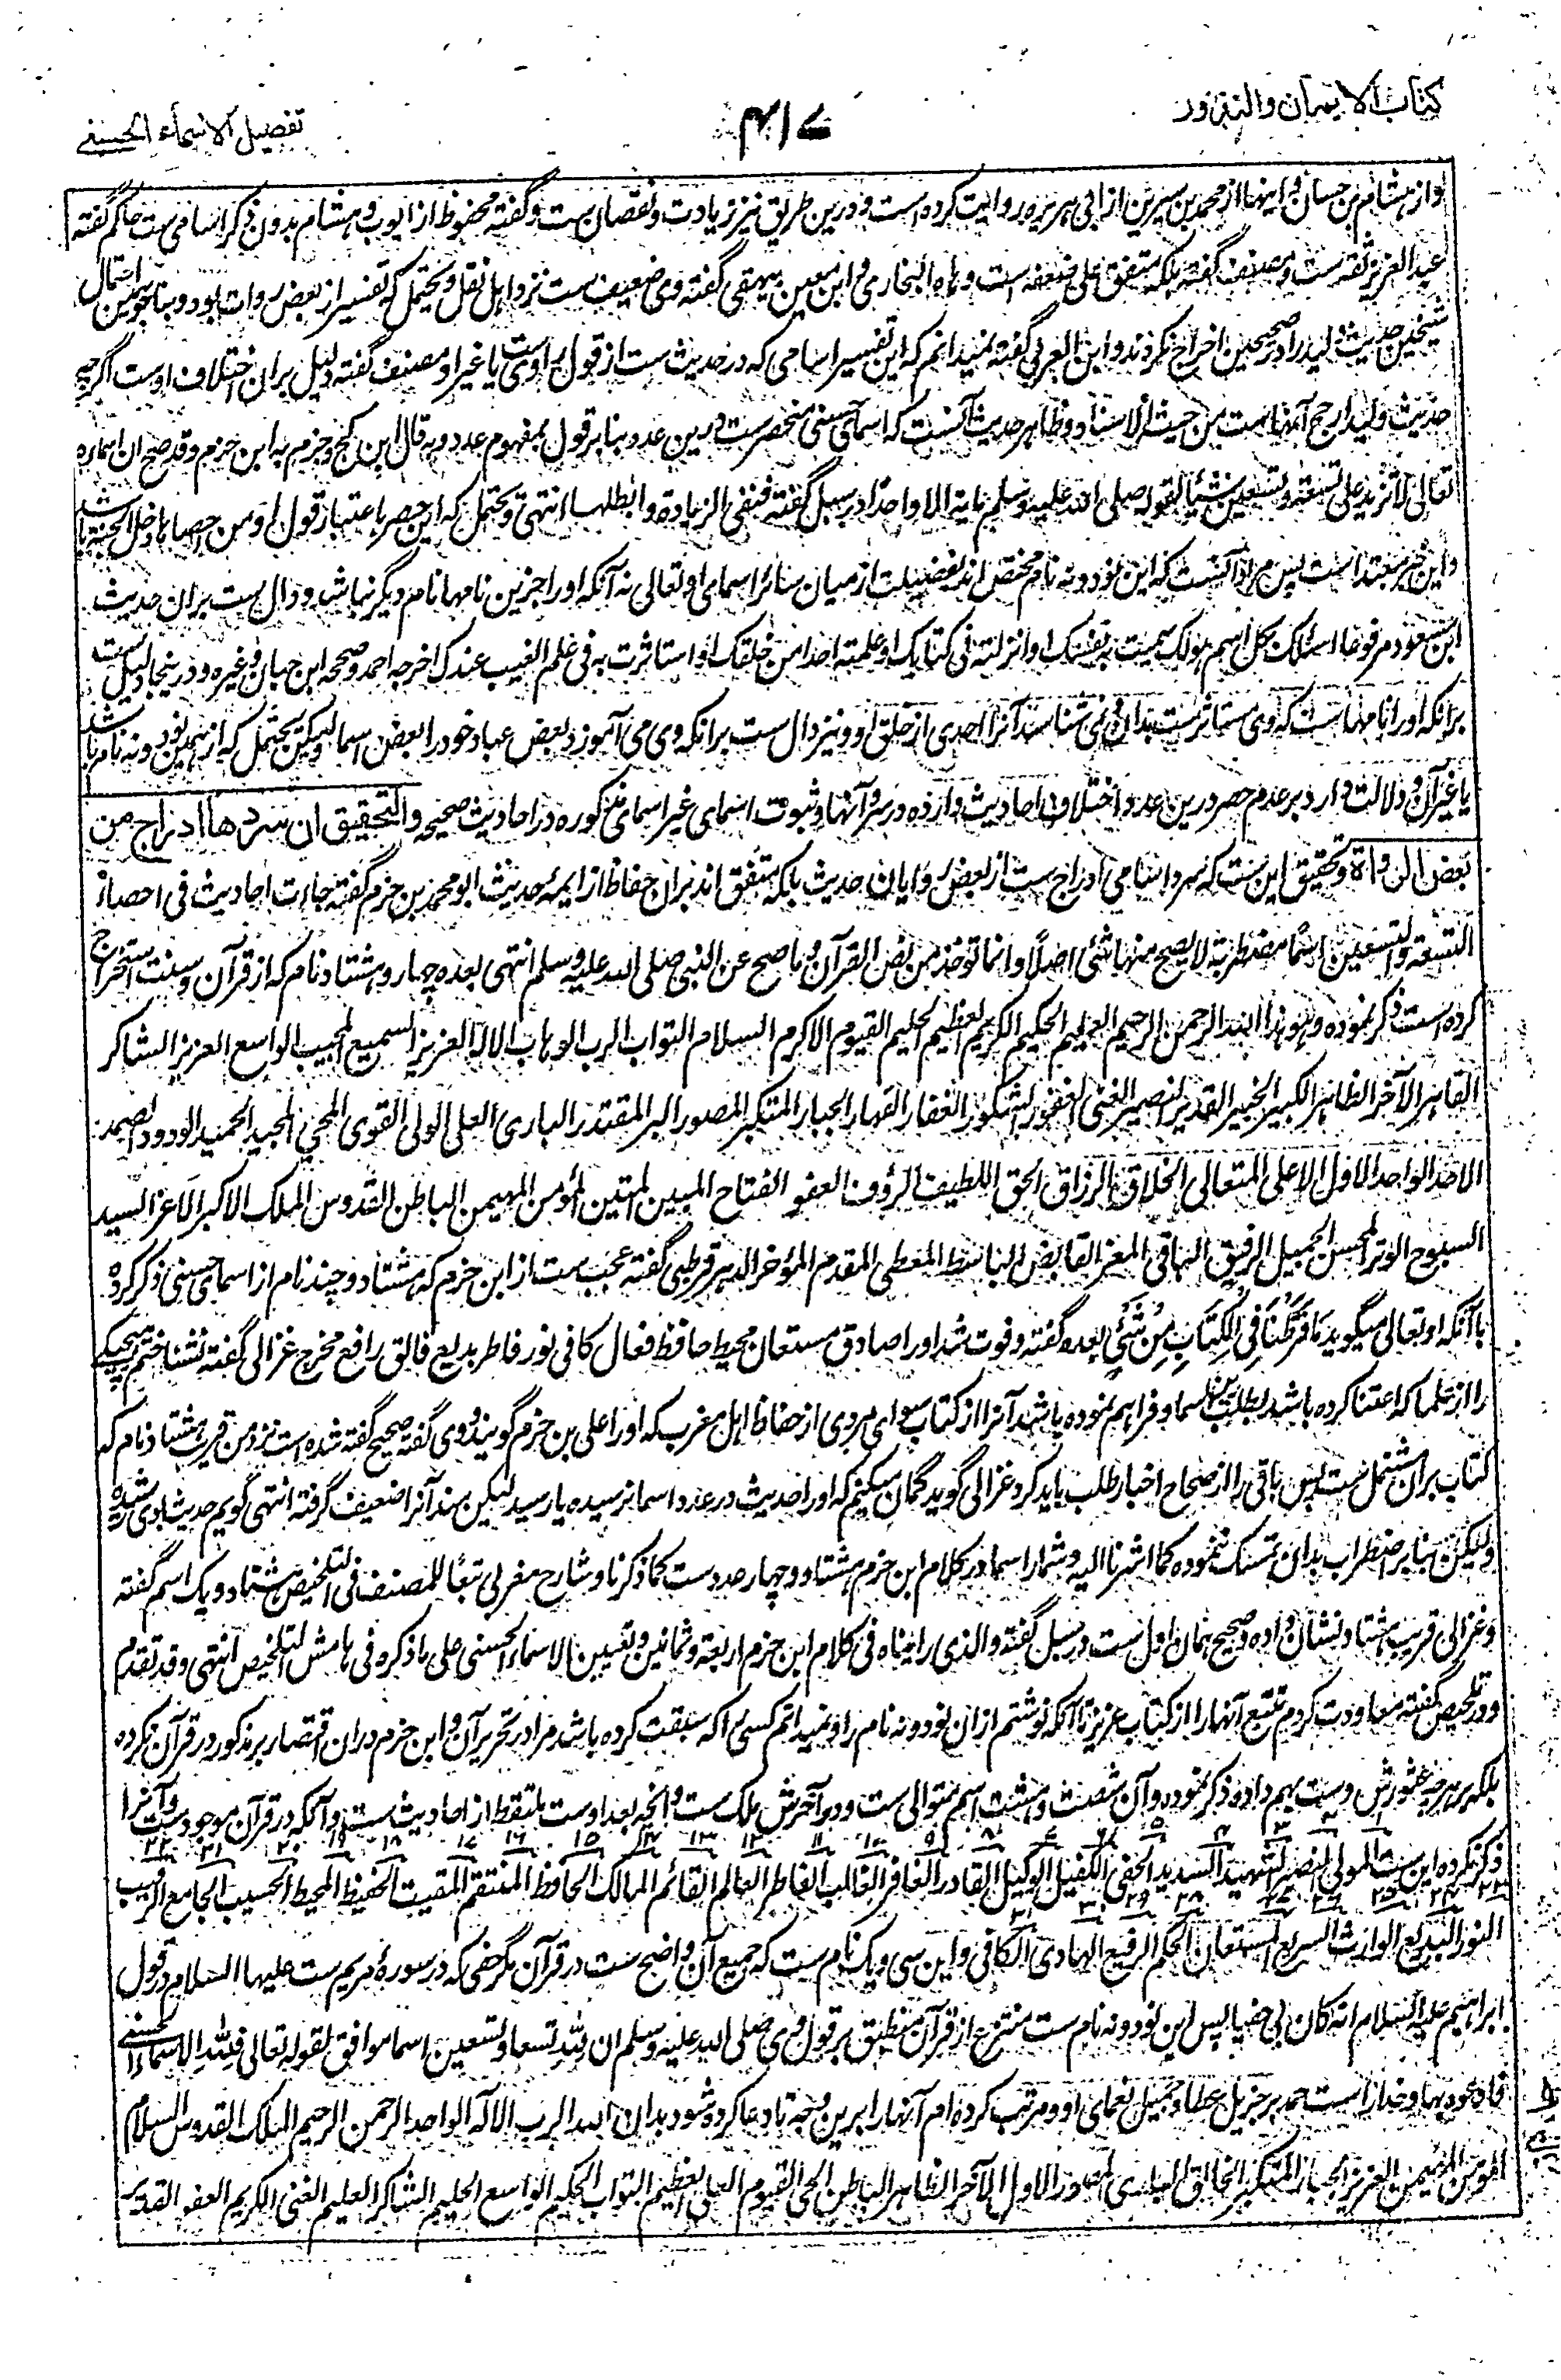 کتاب الایمان والنذور
۴۱۷
تفصیل الاسماء الحسنی
واز هشام بن حسان و اینها از محمد بن سیرین از ابی هریره روایت کرده است و درین طریق نیز زیادت و نقصان ست و گفته محفوظ از ایوب و هشام بدون ذکر اسامی ست حاکم گفته
عبد العزیز ثقه ست و مصنف گفته بلکه متفق علی ضعفه است و هاه البخاری و ابن معین بیهقی گفته وی ضعیف ست نزد اهل نقل و یحتمل که تفسیر از بعض روات بود و بنا بر همین احتمال
شیخین حدیث ولید را در صحیحین اخراج نکردند و ابن العربی گفته نمیدانم که این تفسیر اسامی که در حدیث ست از قول راوی ست یا غیر او مصنف گفته دلیل بران اختلاف اوست اگرچه
حدیث ولید ارجح آنهاست من حیث الاسناد و ظاهر حدیث آنست که اسمای حسنی منحصرست درین عدد بنا بر قول بمفهوم عدد و به قال ابن کج و جزم به ابن حزم و قد صح ان اسماءه
تعالی لا تزید علی تسعة و تسعین شیئا لقوله صلی الله علیه وسلم مایة الا واحدا در سبل گفته فنفی الزیادة و ابطلها انتهی و یحتمل که این حصر باعتبار قول او من احصاها دخل الجنة باشد
و این خبر مبتداست پس مراد آنست که این نود و نه نام مختص اند بفضیلت از میان سائر اسمای او تعالی نه آنکه او را جز این نامها نام دیگر نباشد و دال ست بران حدیث
ابن مسعود مرفوعا اسألک بکل اسم هو لک سمیت به نفسک او انزلته فی کتابک او علمته احدا من خلقک او استاثرت به فی علم الغیب عندک اخرجه احمد و صححه ابن حبان و غیره و درینجا دلیل ست
برانکه او را نامهاست که وی مستاثرست بدان و نمی شناسد آنرا احدی از خلق او و نیز دال ست برانکه وی می آموزد بعض عباد خود را بعض اسما و لیکن یحتمل که از همین نود و نه نام باشد
یا غیر آن و دلالت دارد بر عدم حصر درین عدد اختلاف احادیث وارده در سرد آنها و ثبوت اسمای غیر اسمای مذکوره در احادیث صحیحه والتحقیق ان سردها ادراج من
بعض الرواة و تحقیق این ست که سرد اسامی ادراج ست از بعض راویان حدیث بلکه متفق اند بران حفاظ از ایمه حدیث ابو محمد بن حزم گفته جاءت احادیث فی احصاء
التسعة والتسعین اسما مضطربة لا یصح منها شئی اصلا وانما توخذ من نص القرآن و ما صح عن النبی صلی الله علیه وسلم انتهی بعده چهار و هشتاد نام که از قرآن و سنت استخراج
کرده است ذکر نموده و هو هذا الله الرحمن الرحیم العلیم الحکیم الکریم العظیم الحلیم القیوم الاکرم السلام التواب الرب الوهاب الاله العزیز السمیع المجیب الواسع العزیز الشاکر
القاهر الآخر الظاهر الکبیر الخبیر القدیر النصیر الغنی الغفور الشکور الغفار القهار الجبار المتکبر المصور البر المقتدر الباری العلی الولی القوی المحی المجید الحمید الودود الصمد
الاحد الواحد الاول الاعلی المتعالی الخلاق الرزاق الحق اللطیف الرؤف العفو الفتاح المبین المتین المؤمن المهیمن الباطن القدوس الملک الاکبر الاعز السید
السبوح الوتر المحسن الجمیل الرفیق الباقی المعز القابض الباسط المعطی المقدم المؤخر الدهر قرطبی گفته عجب ست از ابن حزم که هشتاد و چند نام از اسمای حسنی ذکر کرده
با آنکه او تعالی میگوید مَا فَرَّطْنَا فِی الْکِتَابِ مِنْ شَئْیٍ بعده گفته و فوت شد او را صادق مستعان محیط حافظ فعال کافی نور فاطر بدیع فالق رافع مخرج غزالی گفته نشناختم هیچیکی
را از علما که اعتنا کرده باشد بطلب این اسما و فراهم نموده باشد آنرا از کتاب سوای مردی از حفاظ اهل مغرب که او را علی بن حزم گویند وی گفته صحیح گفته شده است نزد من قریب هشتاد نام که
کتاب بران مشتمل ست پس باقی را از صحاح اخبار طلب باید کرد غزالی گوید گمان میکنم که او را حدیث در عدد اسما نرسیده یا رسید لیکن سند آنرا ضعیف گرفته انتهی گویم حدیث بوی رسیده
و لیکن بنا بر اضطراب بدان تمسک ننموده کما اشرنا الیه و شمار اسما در کلام ابن حزم هشتاد و چهار عددست کما ذکرنا و شارح مغربی تبعا للمصنف فی التلخیص هشتاد و یک اسم گفته
و غزالی قریب هشتاد نشان داده و صحیح همان اول ست در سبل گفته والذی رایناه فی کلام ابن حزم اربعة و ثمانین و تعیین الاسماء الحسنی علی ما ذکره فی هامش التلخیص انتهی و قد تقدم
و در تلخیص گفته معاودت کردم تتبع آنها را از کتاب عزیز تا آنکه نوشتم ازان نود و نه نام را و نمیدانم کسی را که سبقت کرده باشد مرا در تحریر آن و ابن حزم دران اقتصار بر مذکور در قرآن نکرده
بلکه بر هر چه عثورش دست بهم داده ذکر نموده و آن شصت و هشت اسم متوالی ست و در آخرش ملک ست و آنچه بعد اوست ملتقط از احادیث ست و آنکه در قرآن موجودست و آنرا
ذکر نکرده این ست المولی النصیر الشهید الشدید الحفی الکفیل الوکیل القادر الغافر الغالب الفاطر العالم القائم المالک الحافظ المنتقم المقیت الحفیظ المحیط الحسیب الجامع الرقیب
النور البدیع الوارث السریع المستعان الحکم الرفیع الهادی الکافی و این سی و یک نام ست که جمیع آن واضح ست در قرآن مگر حفی که در سورهٔ مریم ست علیها السلام در قول
ابراهیم علیه السلام انه کان بی حفیا پس این نود و نه نام ست منتزع از قرآن منطبق بر قول وی صلی الله علیه وسلم ان لله تسعا و تسعین اسما موافق لقوله تعالی فلله الاسماء الحسنی
فادعوه بها و خدا راست حمد بر جزیل عطا و جمیل نعمای او و مرتب کرده ام آنها را برین وجه تا دعا کرده شود بدان الله الرب الاله الواحد الرحمن الرحیم الملک القدوس السلام
المؤمن المهیمن العزیز الجبار المتکبر الخالق الباری المصور الاول الآخر الظاهر الباطن الحی القیوم العلی العظیم التواب الحکیم الواسع الحلیم الشاکر العلیم الغنی الکریم العفو القدیر